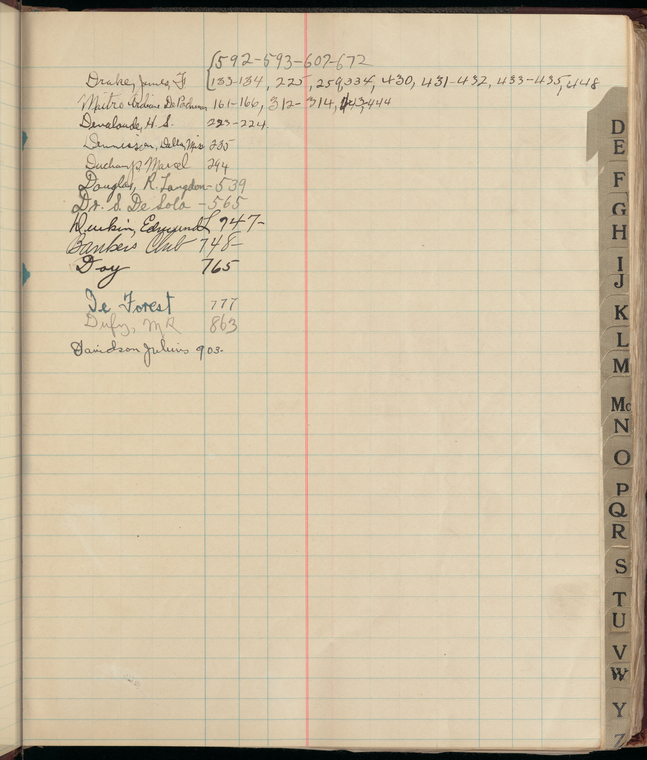 {592-593-607-672
Drake, James F. {133-134, 225, 259, 334, 430, 431-432, 433-435, 448
De Bohun 161-166, 312-314, 443-444
H. S. 223-224
Dennison, Della, Miss 235
Duchamp Marcel 244
Douglas, R. Langdon-539
Dr. S. De Sola -565
Durkin, Edmund L 747-
Bankers Club 748-
Doy 765
De Forest 777
Dufy, MR 863
Davidson Julius 903-
D
E
F
G
H
I
J
K
L
M
Mc
N
O
P
Q
R
S
T
U
V
W
Y
Z